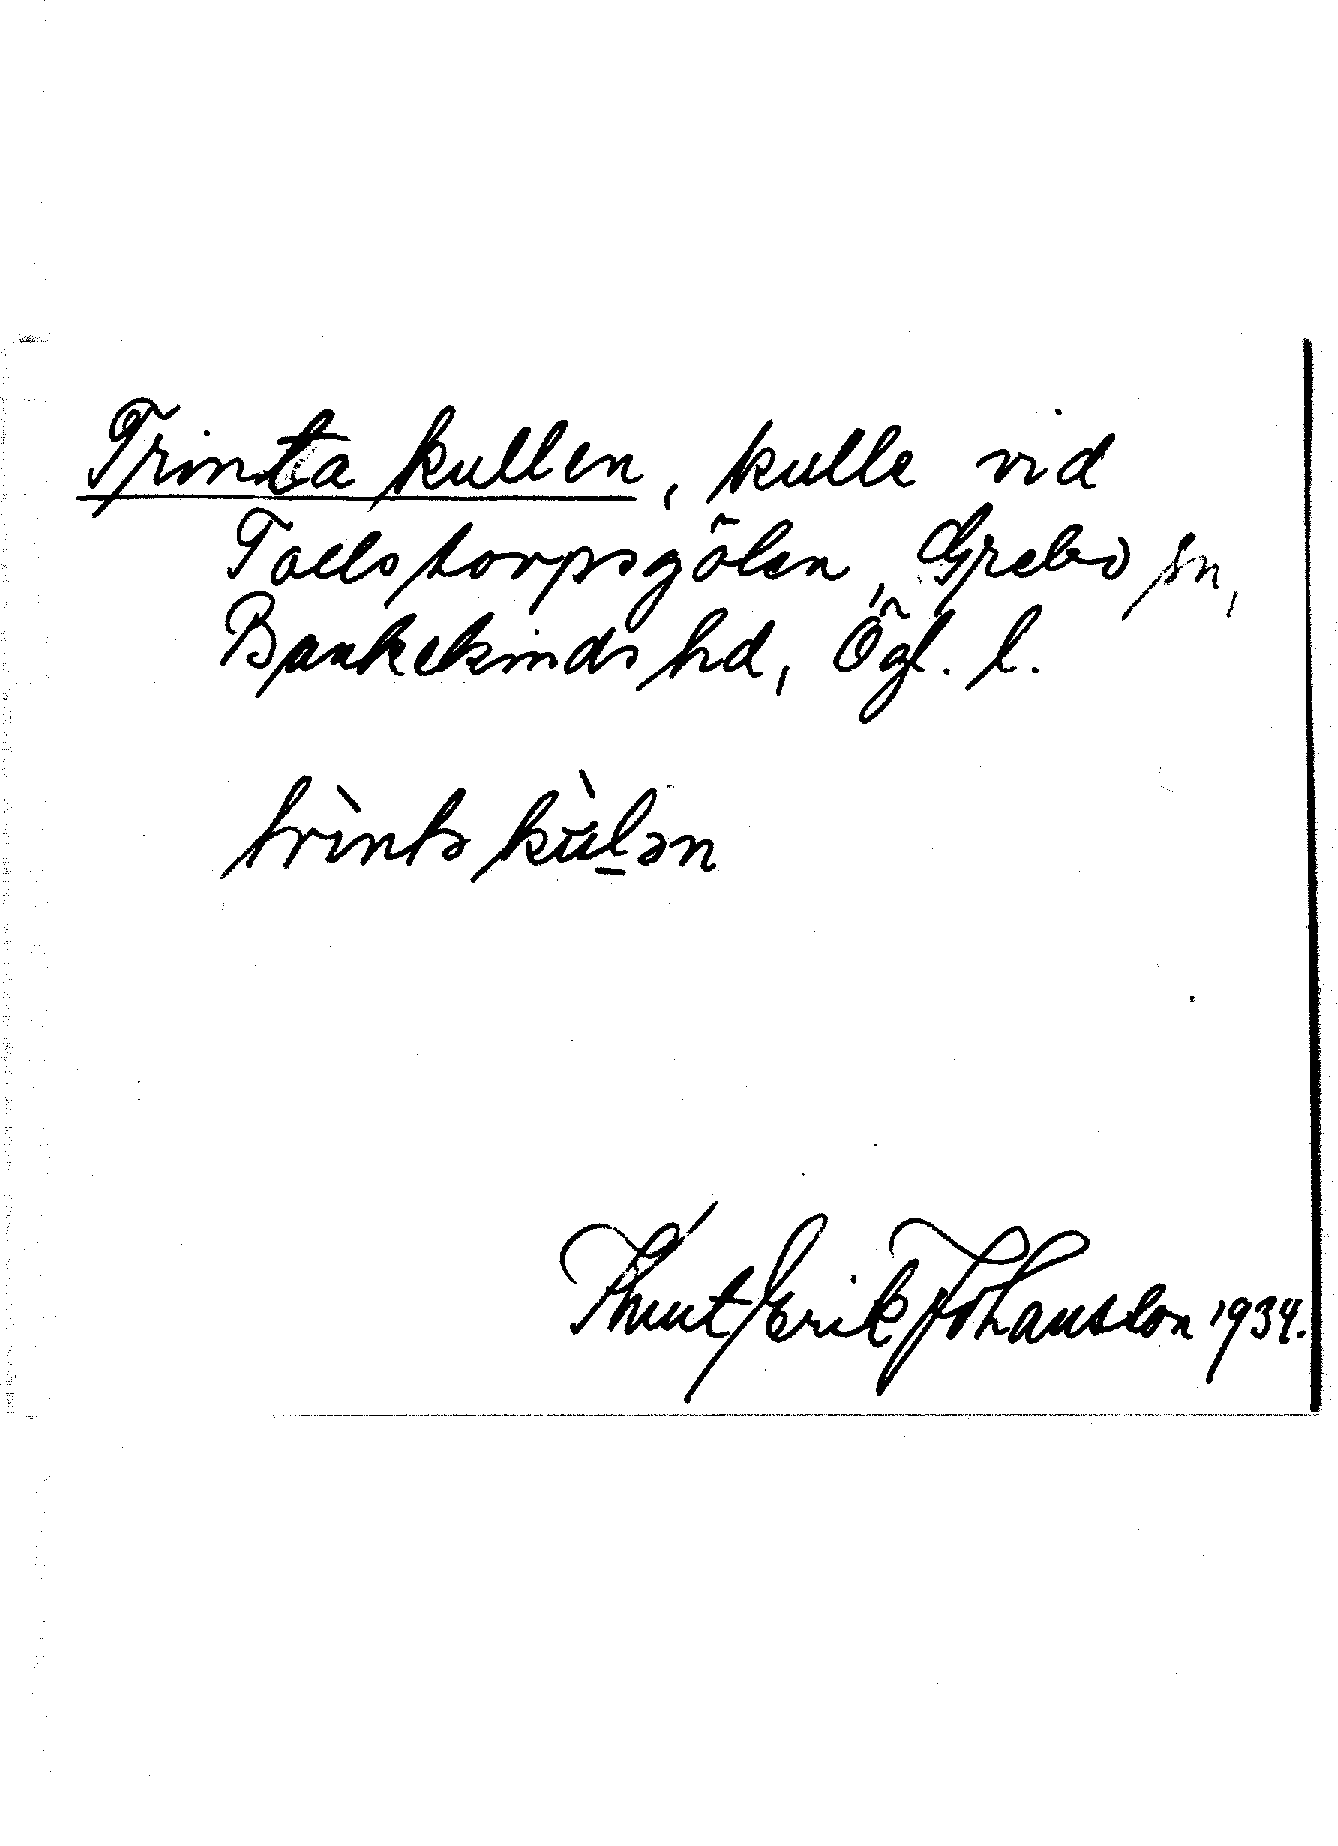 Trinta kullen, kulle vid
Tollstorpsgölen, Grebo sn,
Bankekinds hd, Ögl. l.
trìntə kùlən
Knut Erik Johansson 1934.